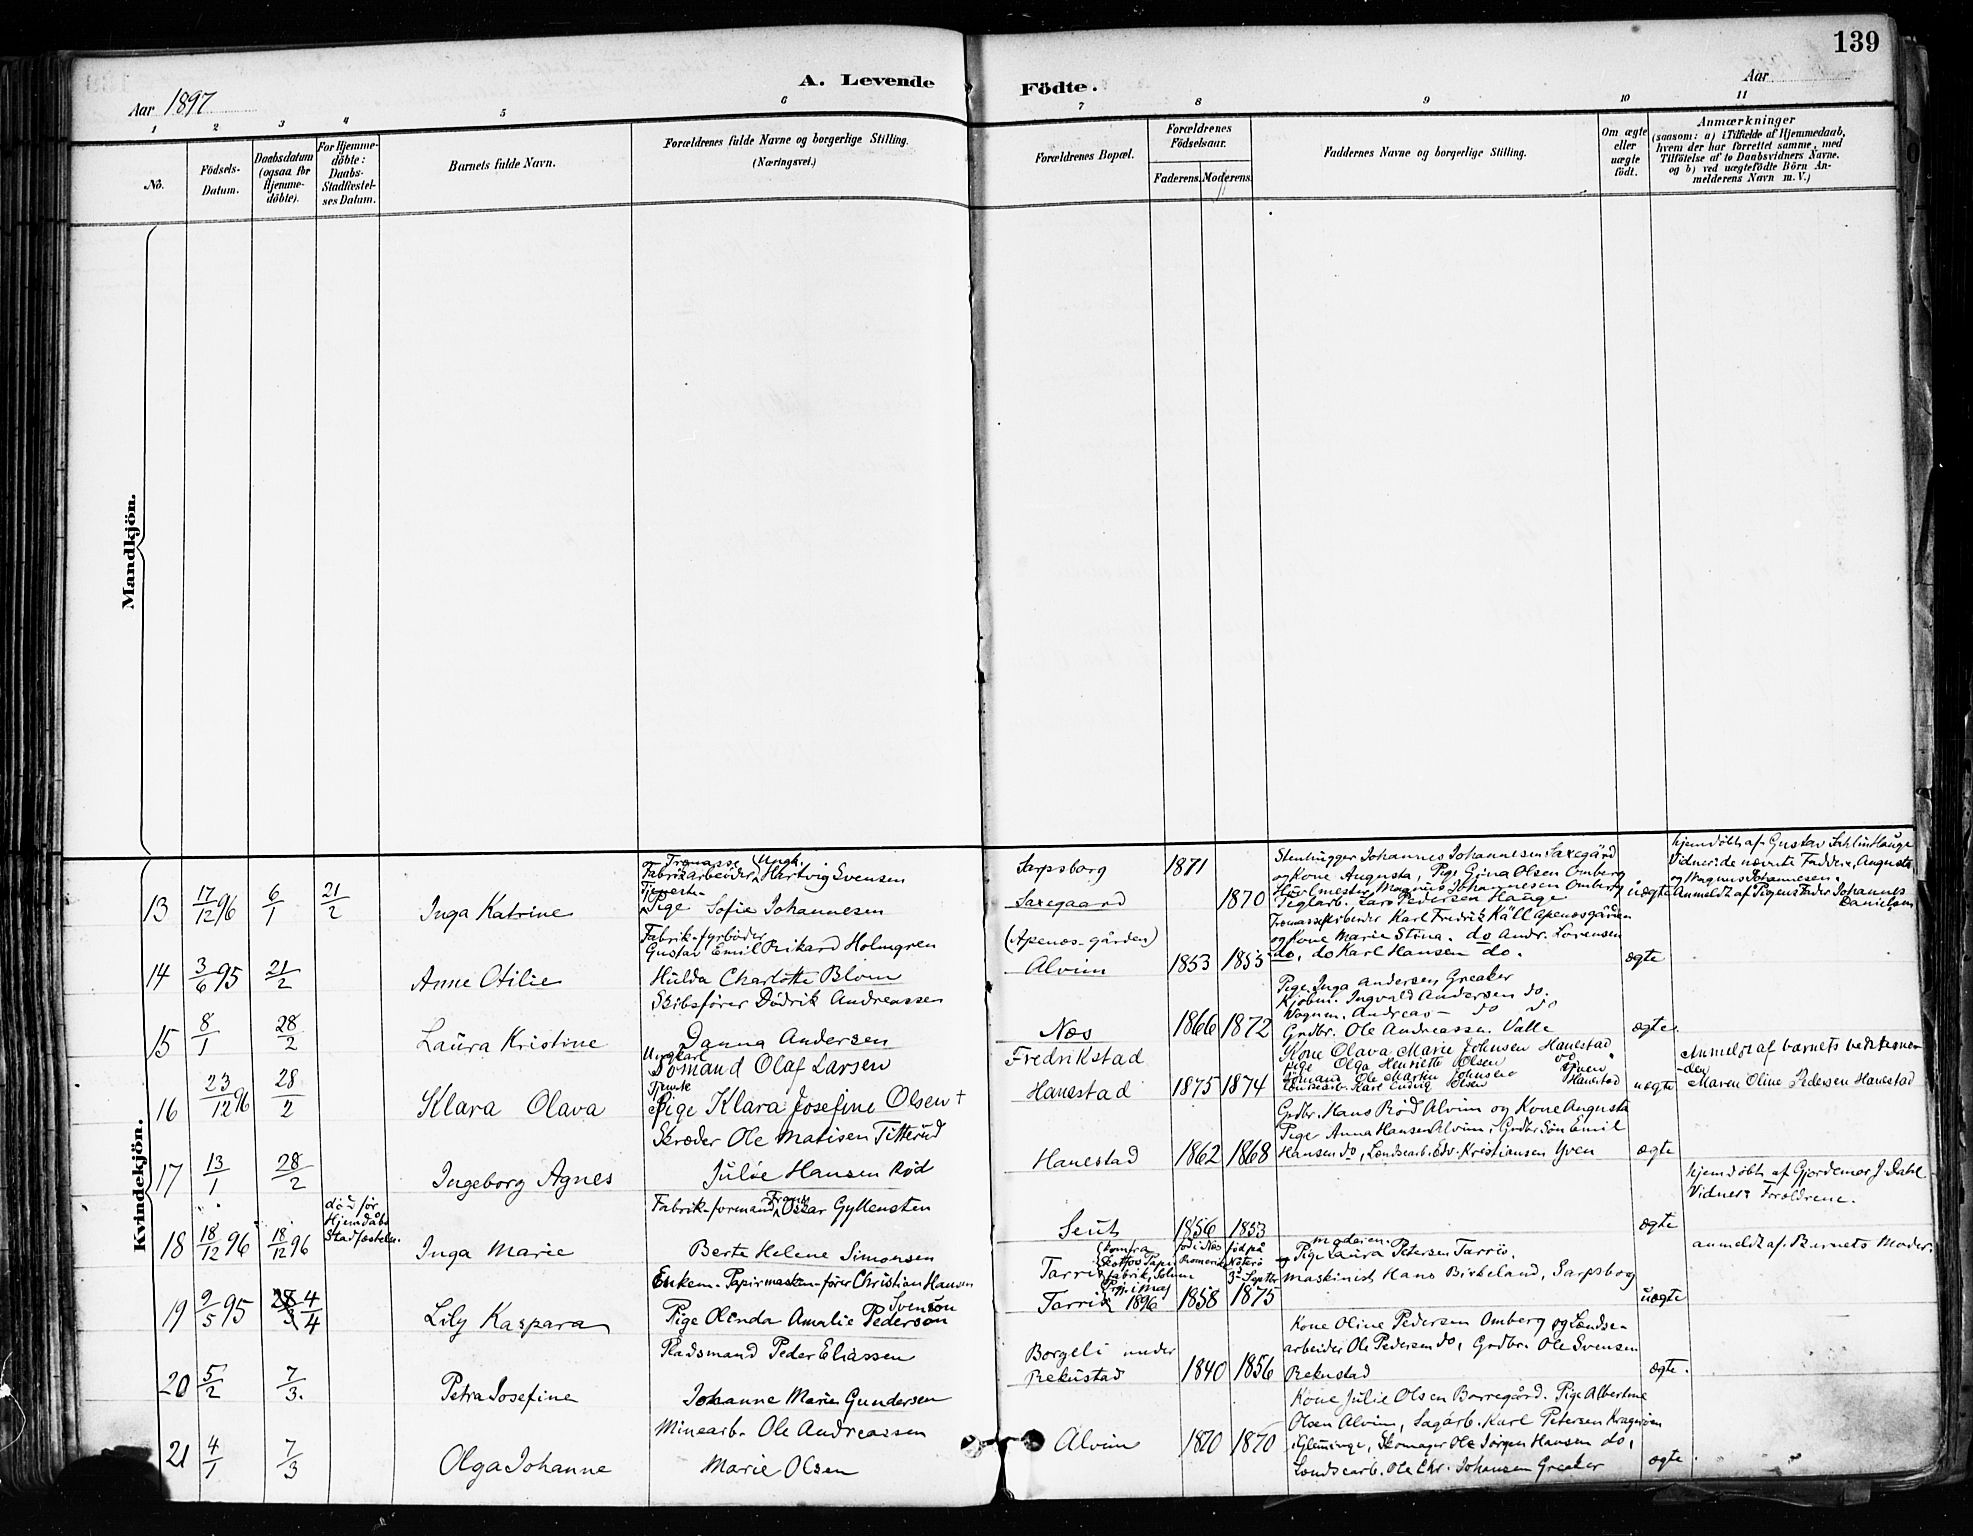 139
A. Levende Födte.
Aar 1897
Aar
1 2 3 4 5 6 7 8 9 10 11
No.
Födsels-Datum.
Daabsdatum (ogsaa for Hjemme-döbte).
For Hjemme-döbte: Daabs-Stadfæstel-ses Datum.
Barnets fulde Navn.
Forældrenes fulde Navne og borgerlige Stilling.
(Næringsvei.)
Forældrenes Bopæl.
Forældrenes Födselsaar.
Faderens. Moderens.
Faddernes Navne og borgerlige Stilling.
Om ægte eller uægte födt.
Anmærkninger
(saasom: a) i Tilfælde af Hjemmedaab,
hvem der har forrettet samme, med
Tilföielse af to Daabsvidners Navne,
og b) ved uægtefödte Börn An-
melderens Navn m. V.)
Mandkjön.
Kvindekjön.
13 17/12 96 6/1 21/2 Inga Katrine
Fabrikarbeider Ungk. Hartvig Evensen
Tjeneste-
Pige Sofie Johannesen
Sarpsborg 1871
Saxegaard 1870
Stenhugger Johannes Johannesen Saxegård
og Kone Augusta, Pige Gina Olsen Omberg
Magnus Johannesen Omberg
Teglarb. Lars Pedersen Hauge
uægte
hjemdöbt af Gustav Hauge
Vidner: de nævnte Faddere, Augusta
og Magnus Johannesen.
Anmeldt af Pigens Fader Johannes
Danielsen
14 3/6 95 21/2 Anne Otilie
Fabrik-fyrböder
Gustav Emil Rikard Holmgren
Hulda Charlotte Blom
(Apenæs-gården)
Alvim 1853 1853
Karl Fredrik Käll Apenæsgården
og Kone Marie Stina. do Andr. Lorensen
do, do Karl Hansen do.
ægte
15 8/1 28/2 Laura Kristine
Skibsförer Dödrik Andreassen
Danna Andersen
Næs 1866 1872
Pige Inga Andersen Greaker
Kjöbm. Ingvald Andersen do.
Vognm. Andreas — do do
Grdbr. Ole Andreassen. Valle
ægte.
16 23/12 96 28/2 Klara Olava
Ungkarl
Sömand Olaf Larsen
Tjeneste
Pige Klara Josefine Olsen +
Fredrikstad
Hanestad 1875 1874
Kone Olava Marie Johnsen Hanestad
Pige Olga Henriette Olsen do
Sömand Ole Martin Johnsen Yven
Landsearb. Karl Ludvig Olsen Hanestad
uægte
Anmeldt af barnets
Maren Oline Pedersen Hanestad
17 13/1 28/2 Ingeborg Agnes
Skræder Ole Matisen Titterud
Julie Hansen Röd
Hanestad 1862 1868
Grdbr. Hans Röd Alvim og Kone Augusta
Pige Anna Hansen Alvim, Grdbr Sön Emil
Hansen do, Landsearb. Edv. Kristiansen Yven
ægte
18 18/12 96 18/12 96 död för Hjemdåbs Stadfæstelse.
Inga Marie
Fabrik-formand Frans Oskar Gyllensten
Berte Helene Simonsen
Seut 1856 1853
ægte
hjemdöbt af Gjordemor J. Dahl
Vidner: Foraldrene.
19 9/5 95 4/4 Lily Kaspara
Enkem. Papirmaskin-förer Christian Hansen
Svenson
Pige Olenda Amalie Pederson
Tarris
Tarris 1896 1858 1875
moderen.
og Pige Laura Petersen Tarris.
Maskinist Hans Birkeland, Sarpsborg
uægte
anmeldt af Barnets Moder.
20 5/2 7/3. Petra Josefine
Pladsmand Peder Eliassen
Johanne Marie Gundersen
Borgeli under
Rekustad 1840 1856
Kone Oline Pedersen Omberg og Landse-
arbeider Ole Pedersen do, Grdbr. Ole Svensen
Rekustad
ægte.
21 4/1 7/3 Olga Johanne
Minearb. Ole Andreassen
Marie Olsen
Alvim 1870 1870
Kone Julie Olsen Borregård. Pige Albertine
Olsen Alvim, Sagarb. Karl Petersen Kragerøen
i Glemminge, Skomager Ole Jörgen Hansen do,
Landsearb. Ole Chr. Johansen Greaker
ægte.